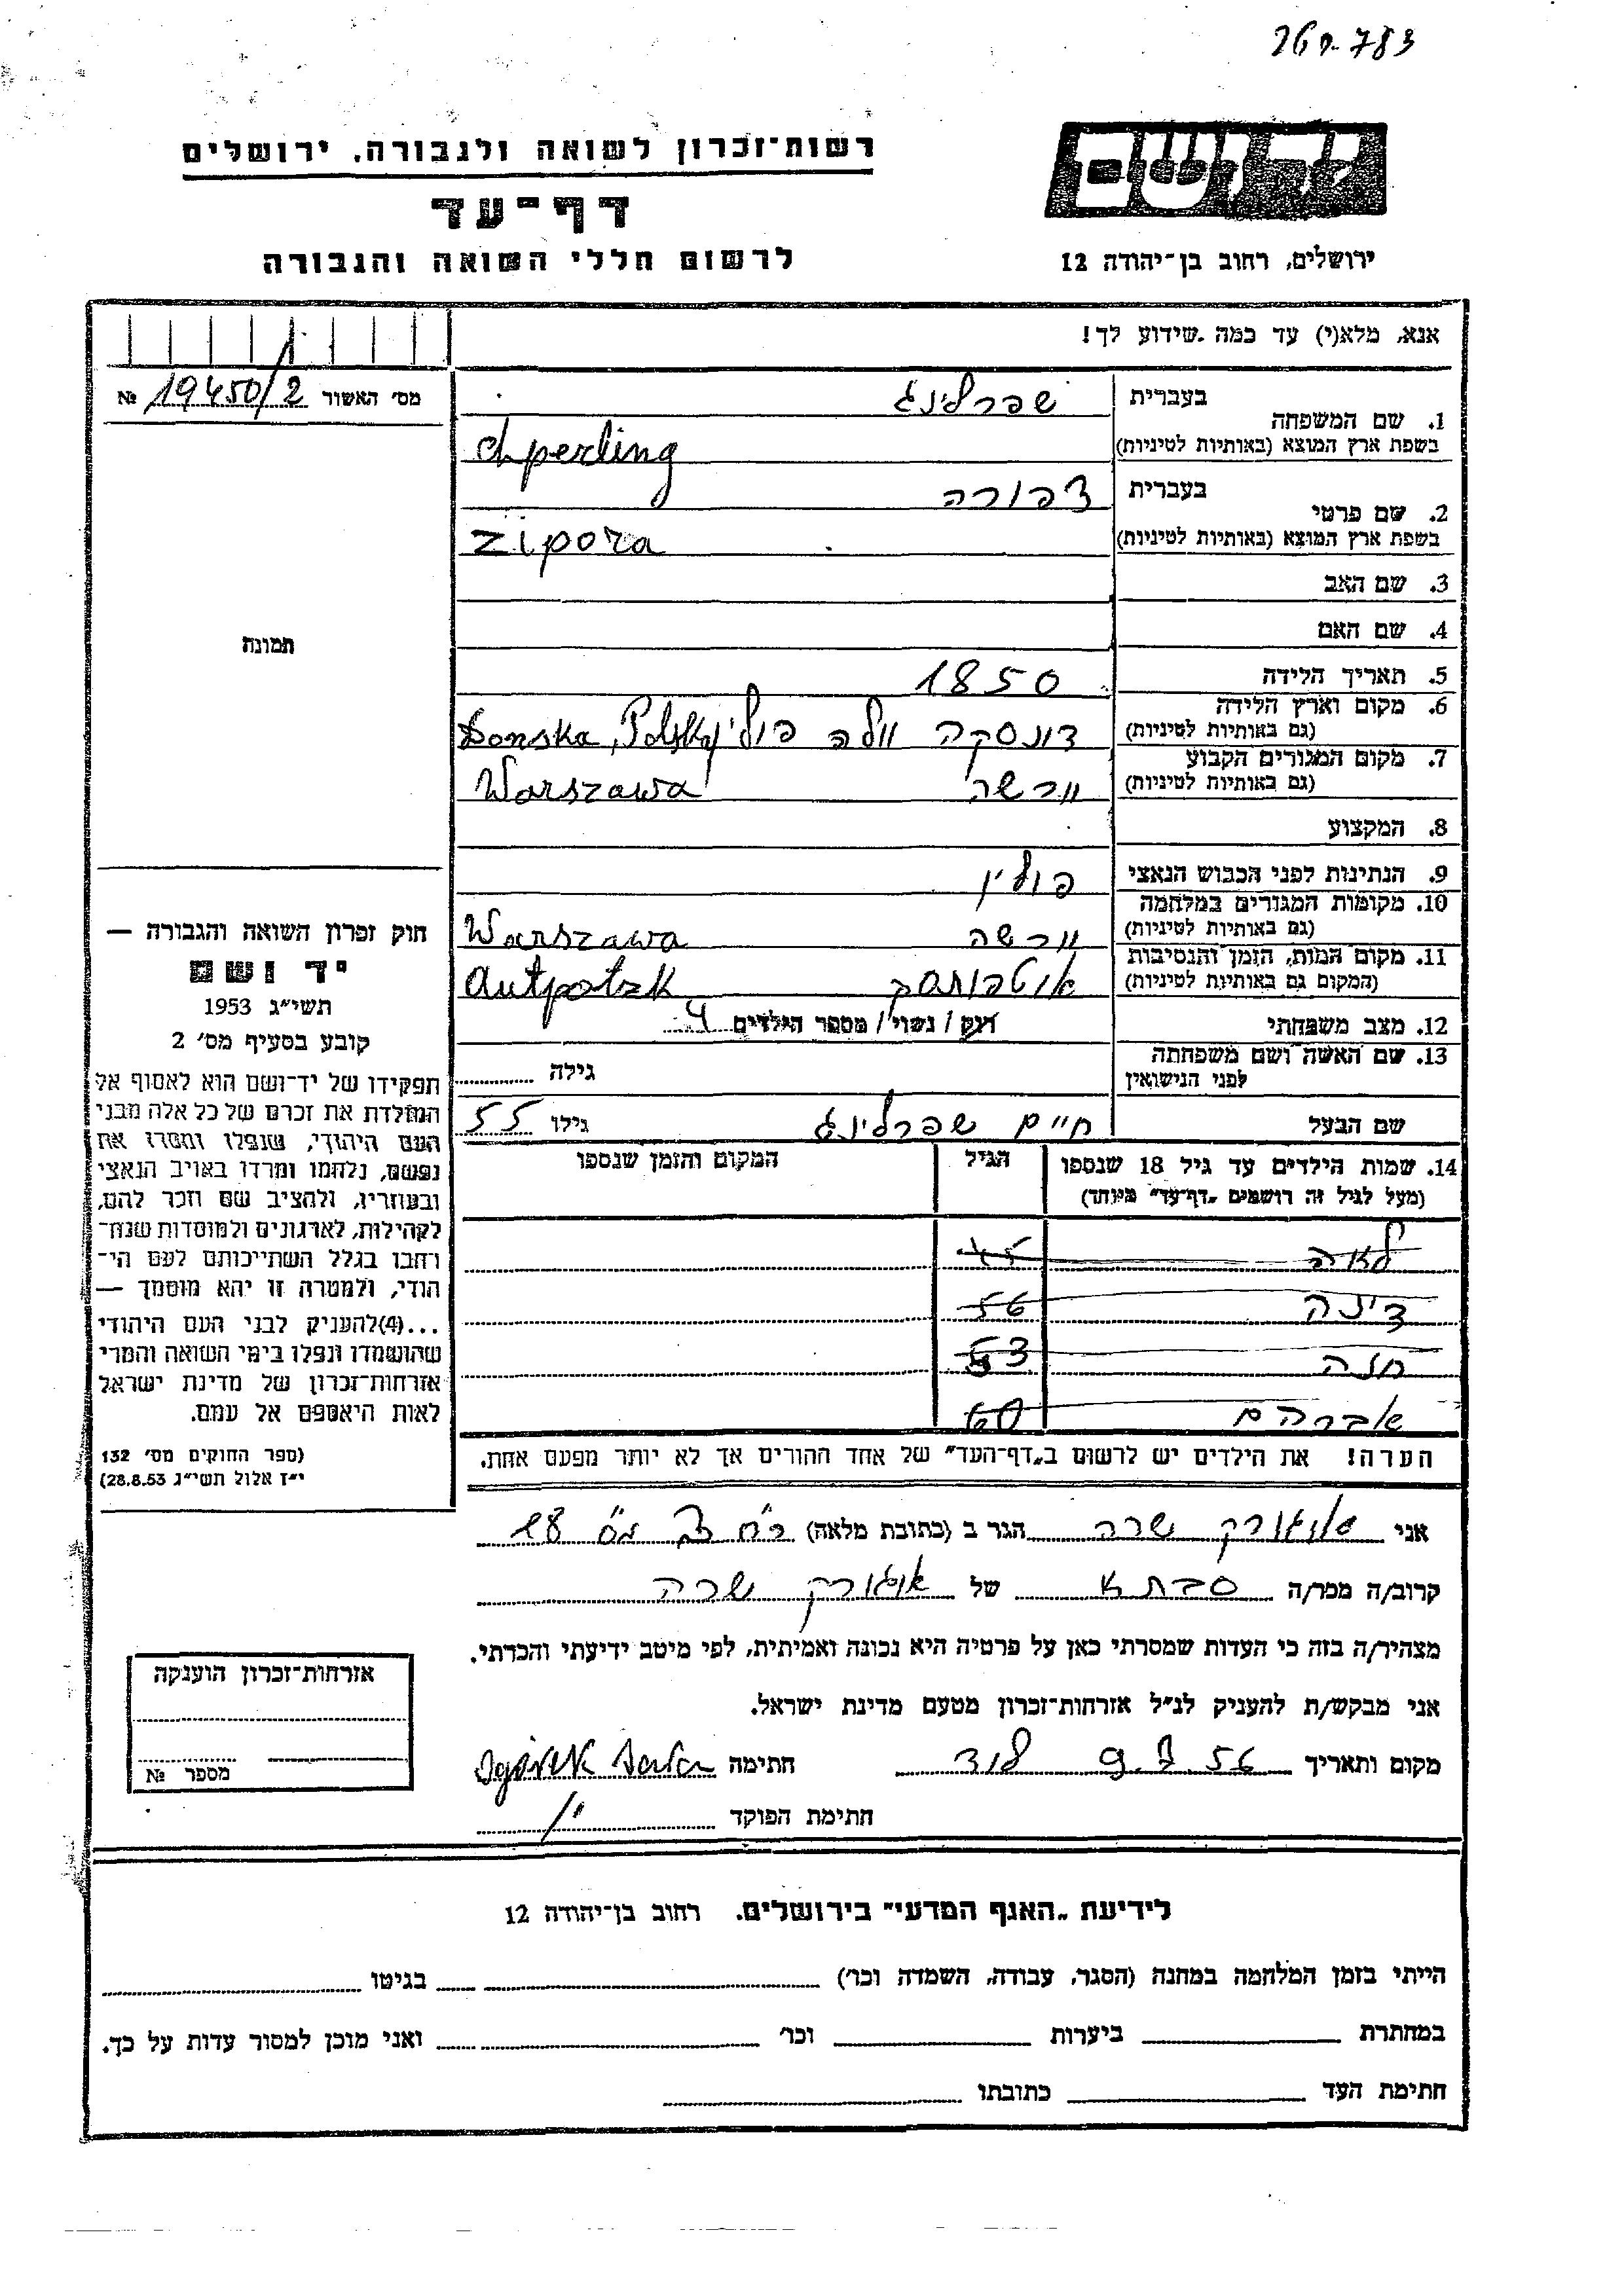 פט. 783
רשות־זכרון לשואה ולגבורה, ירושלים
יד ושם
דף־עד
לרשום חללי השואה והגבורה
ירושלים, רחוב בן־יהודה 12
אנא, מלא(י) עד כמה שידוע לך!
מס׳ האשור 19450/2 №
1. שם המשפחה
בעברית שפרלינג
בשפת ארץ המוצא (באותיות לטיניות) chperling
2. שם פרטי
בעברית צפורה
בשפת ארץ המוצא (באותיות לטיניות) zipora
3. שם האב
4. שם האם
5. תאריך הלידה 1850
6. מקום וארץ הלידה
(גם באותיות לטיניות) דונסקה וולה פולין Donska, Polska
7. מקום המגורים הקבוע
(גם באותיות לטיניות) ורשה Warszawa
8. המקצוע
9. הנתינות לפני הכבוש הנאצי פולין
10. מקומות המגורים במלחמה
(גם באותיות לטיניות) ורשה Warszawa
11. מקום המות, הזמן והנסיבות
(המקום גם באותיות לטיניות) אוטפוצק Autpotzk
12. מצב משפחתי רוק / נשוי / מספר הילדים 4
13. שם האשה ושם משפחתה
לפני הנישואין גילה
שם הבעל חיים שפרלינג גילו 55
14. שמות הילדים עד גיל 18 שנספו הגיל המקום והזמן שנספו
(מעל לגיל זה רושמים „דף־עד” מיוחד)
לאה 45
דינה 56
חנה 53
אברהם 60
הערה! את הילדים יש לרשום ב„דף־העד” של אחד ההורים אך לא יותר מפעם אחת.
תמונה
חוק זכרון השואה והגבורה —
יד ושם
תשי״ג 1953
קובע בסעיף מס׳ 2
תפקידו של יד־ושם הוא לאסוף אל
המולדת את זכרם של כל אלה מבני
העם היהודי, שנפלו ומסרו את
נפשם, נלחמו ומרדו באויב הנאצי
ובעוזריו, ולהציב שם וזכר להם,
לקהילות, לארגונים ולמוסדות שנח־
רחבו בגלל השתייכותם לעם הי־
הודי, ולמטרה זו יהא מוסמך —
...(4) להעניק לבני העם היהודי
שהושמדו ונפלו בימי השואה והמרי
אזרחות־זכרון של מדינת ישראל
לאות היאספם אל עמם.
(ספר החוקים מס׳ 132
י״ז אלול תשי״ג 28.8.53)
אני שרה הגר ב (כתובת מלאה)
קרוב/ה מכר/ה סבתא של שרה
מצהיר/ה בזה כי העדות שמסרתי כאן על פרטיה היא נכונה ואמיתית, לפי מיטב ידיעתי והכרתי.
אני מבקש/ת להעניק לנ״ל אזרחות־זכרון מטעם מדינת ישראל.
מקום ותאריך לוד 9.7.56 חתימה
חתימת הפוקד
אזרחות־זכרון הוענקה
מספר №
לידיעת „האגף המדעי” בירושלים. רחוב בן־יהודה 12
הייתי בזמן המלחמה במחנה (הסגר, עבודה, השמדה וכר׳) בגיטו
במחתרת ביערות וכר׳ ואני מוכן למסור עדות על כך.
חתימת העד כתובתו